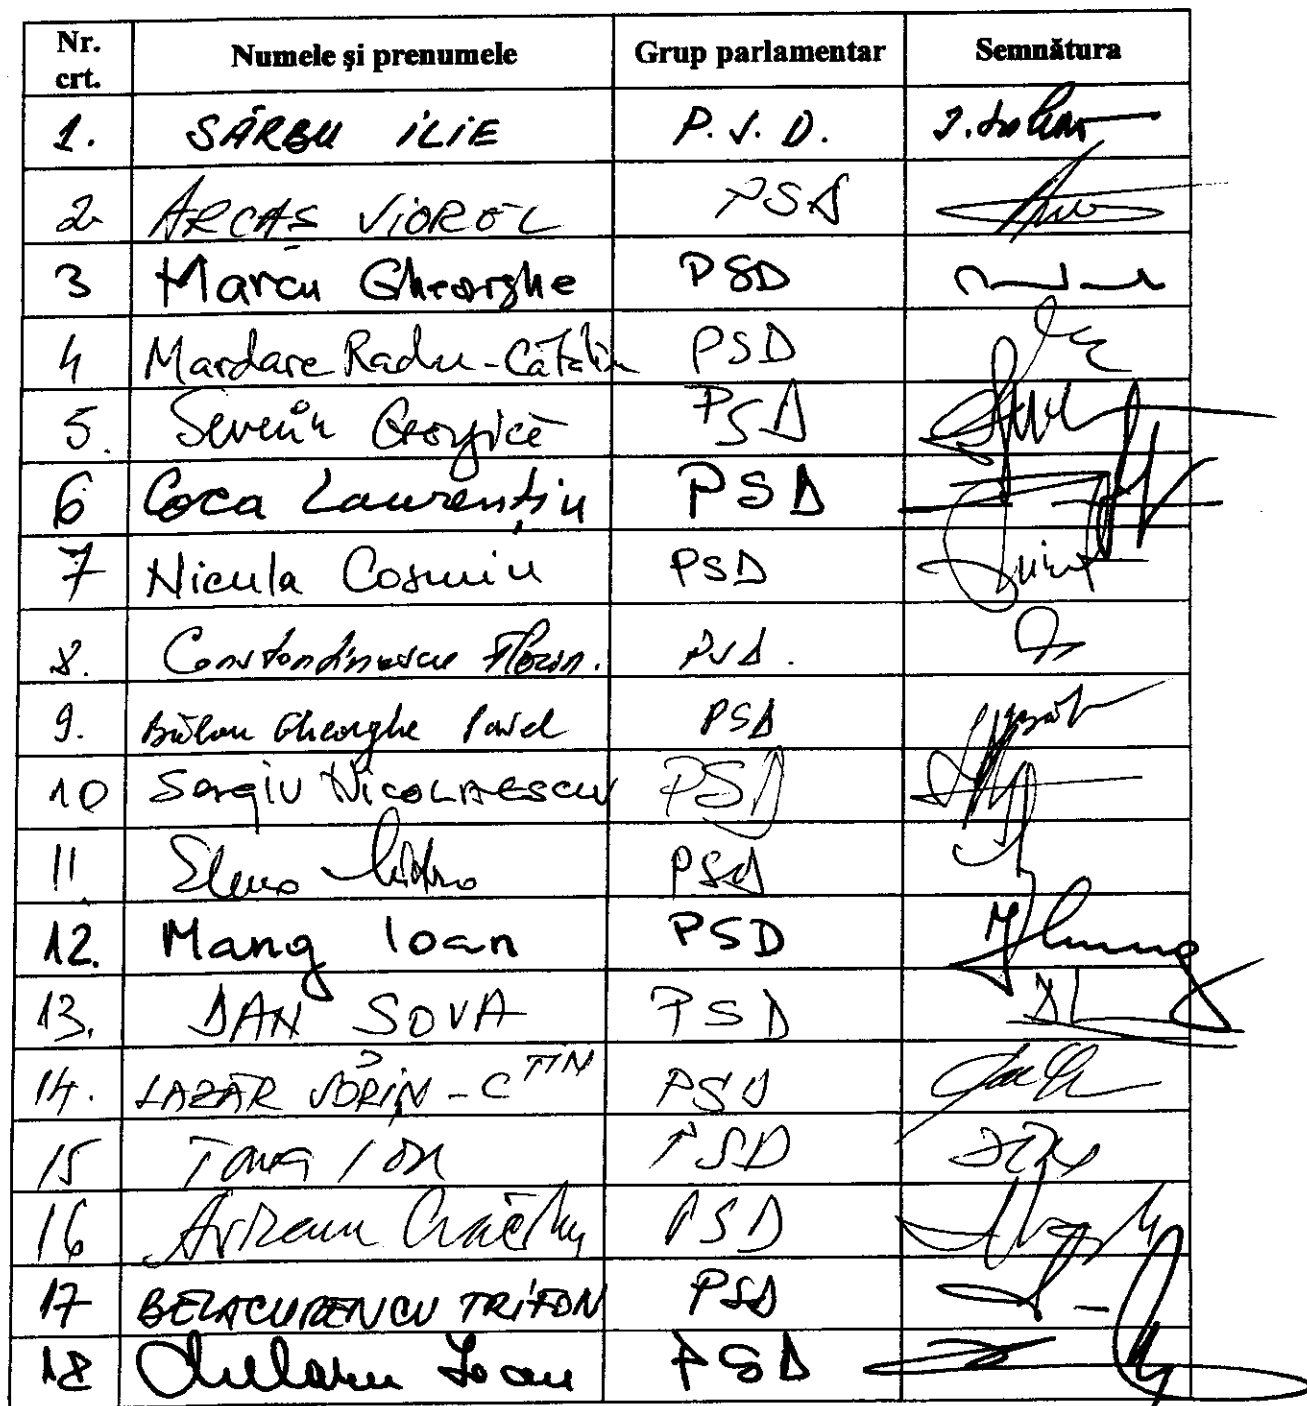 Nr. crt. Numele și prenumele Grup parlamentar Semnătura
1. SÂRBU ILIE P.S.D.
2 ARCAȘ VIOREL PSD
3 Marcu Gheorghe PSD
4 Mardare Radu-Cătălin PSD
5. Severin Georgică PSD
6 Coca Laurențiu PSD
7 Nicula Cosmin PSD
8. Constantinescu Florin. PSD.
9. Bălan Gheorghe Pavel PSD
10 Sergiu NICOLAESCU PSD
11 Elena PSD
12. Mang Ioan PSD
13. DAN SOVA PSD
14. LAZĂR SORIN-CTIN PSD
15 Toma Ion PSD
16 Arcan PSD
17 BELACURENCU TRIFON PSD
18 Chelaru Ioan PSD